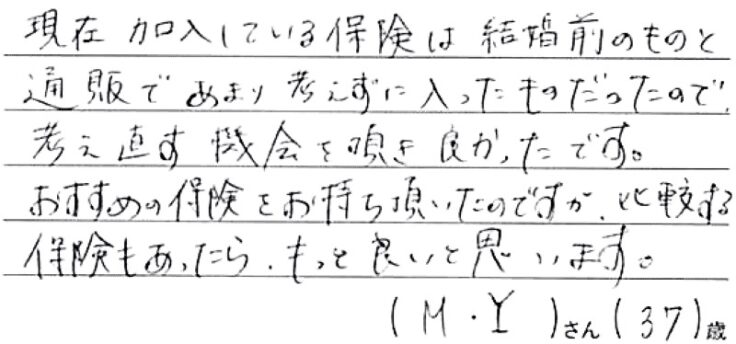 現在加入している保険は結婚前のものと
通販であまり考えずに入ったものだったので、
考え直す機会を頂き良かったです。
おすすめの保険をお持ち頂いたのですが、比較する
保険もあったら、もっと良いと思います。
(M・Y)さん(37)歳